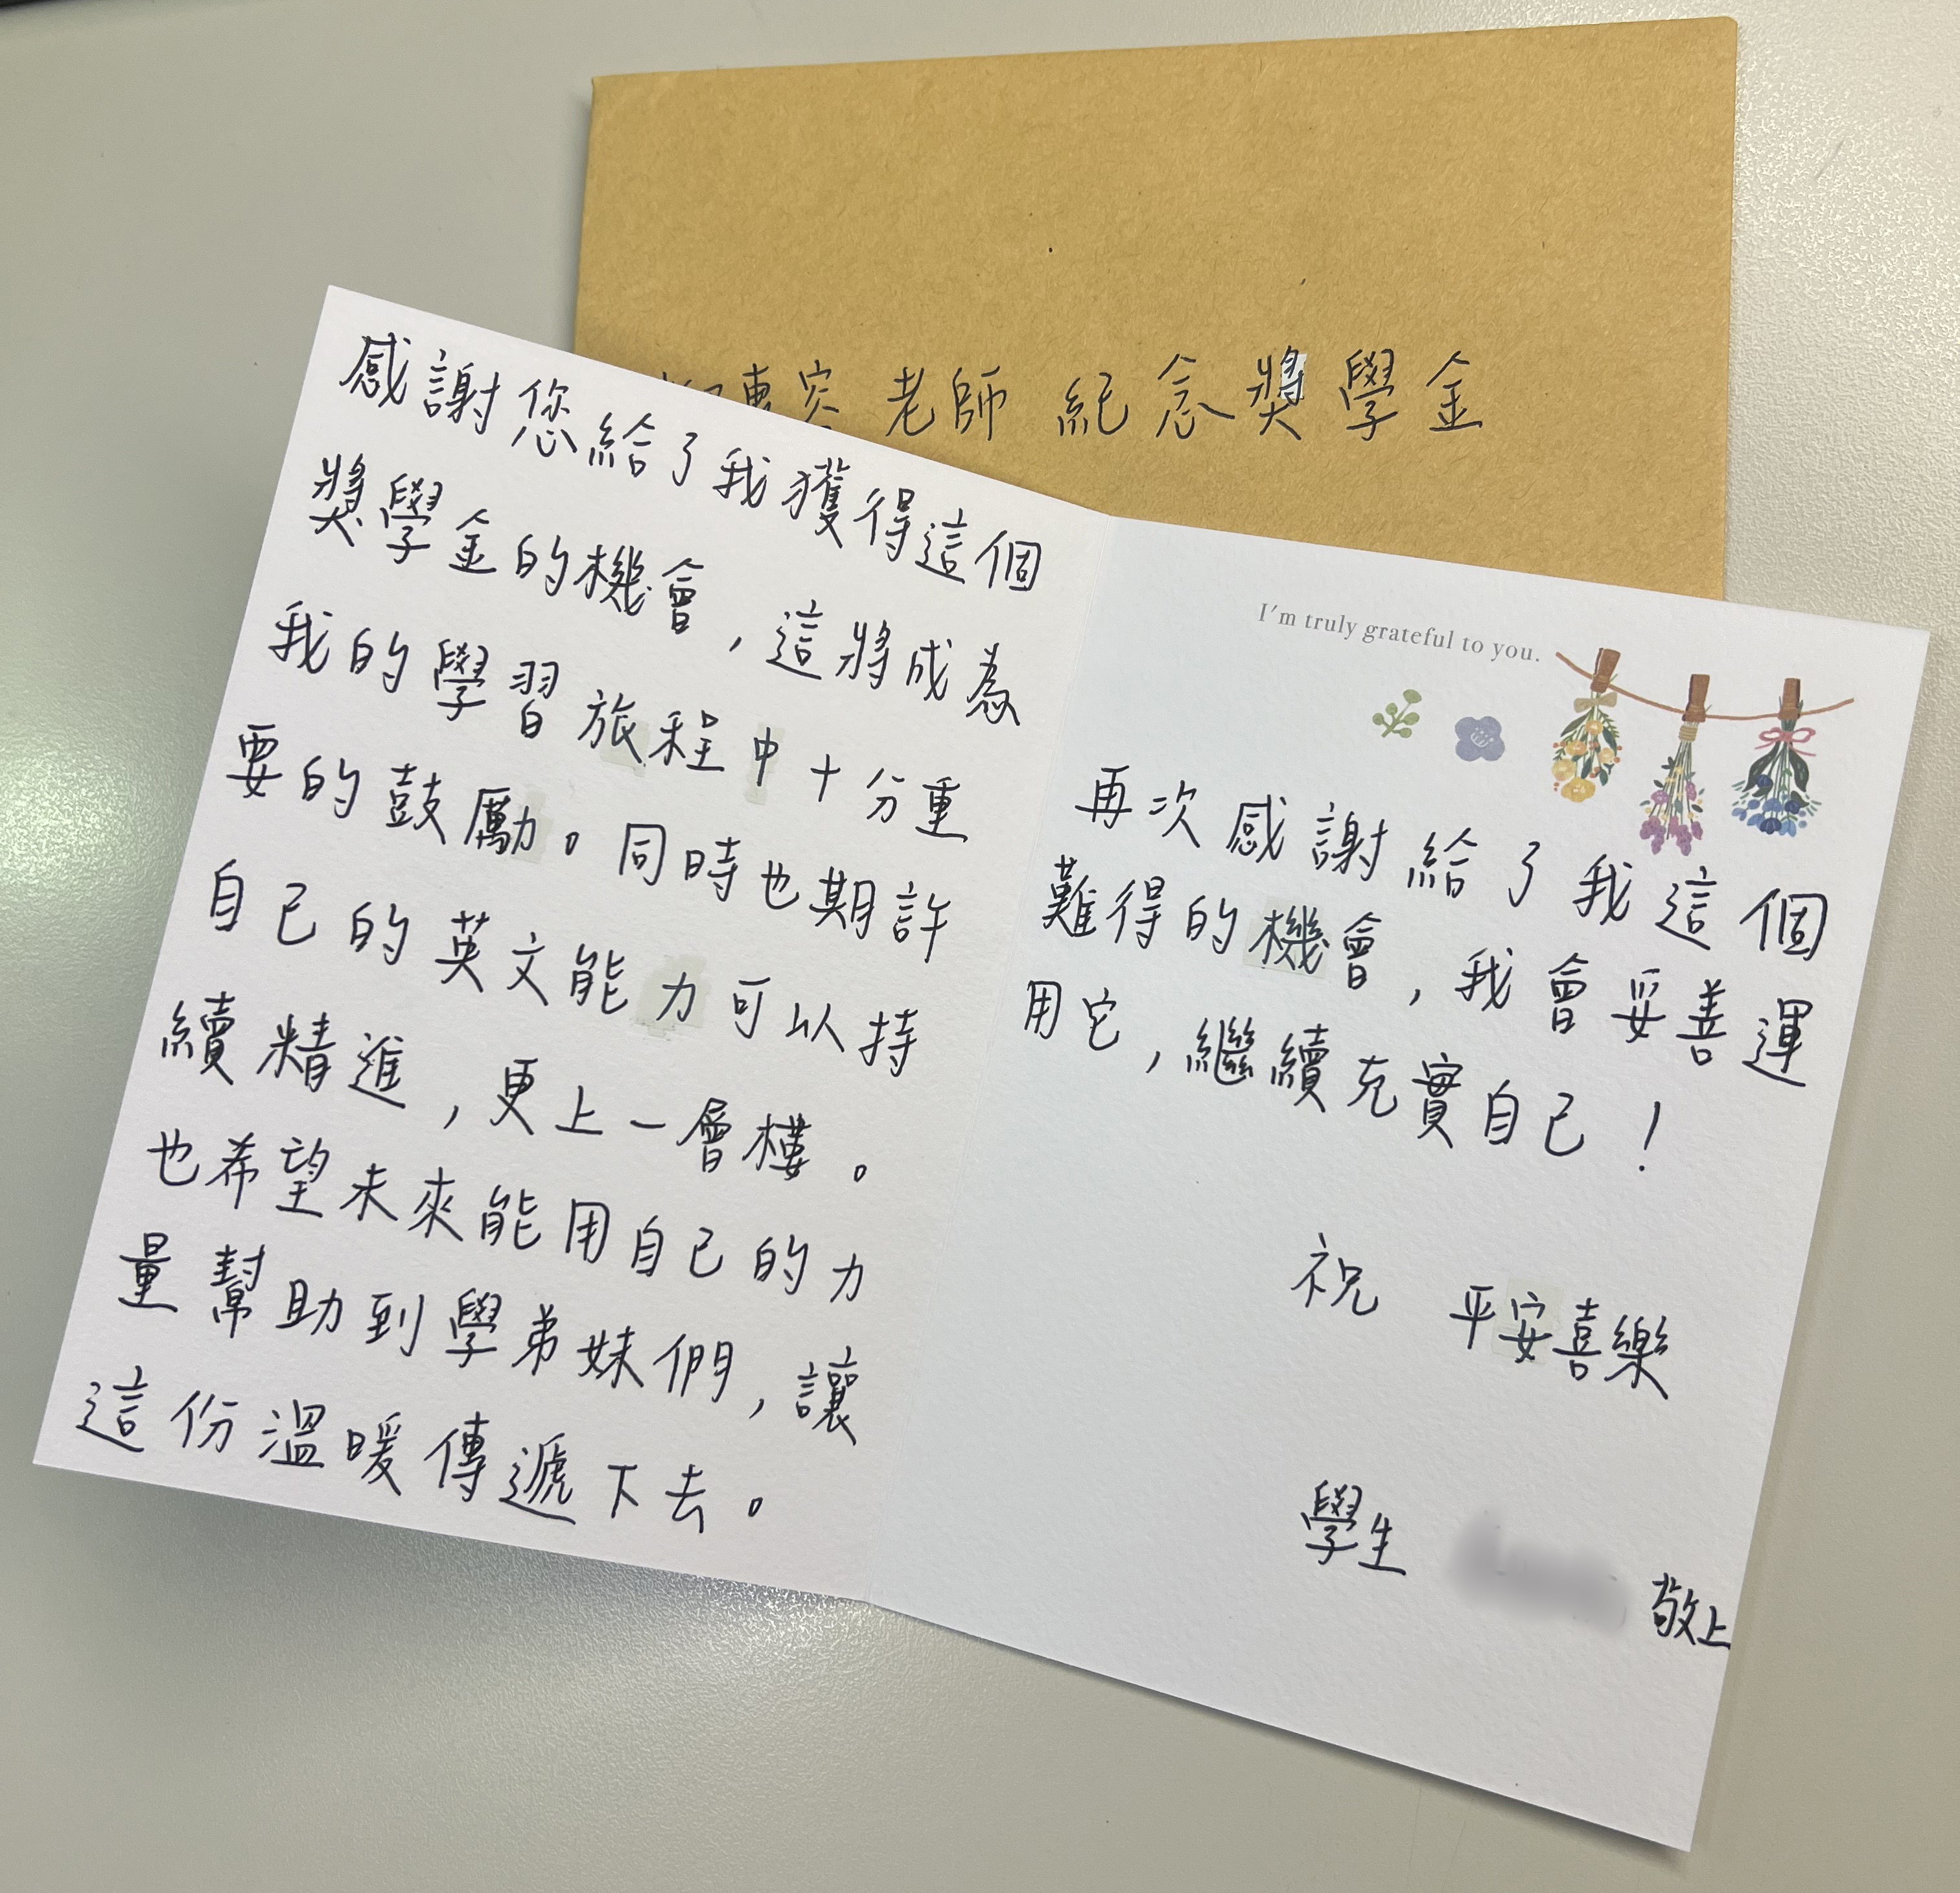 老師紀念獎學金
感謝您給了我獲得這個
獎學金的機會，這將成為
我的學習旅程中十分重
要的鼓勵。同時也期許
自己的英文能力可以持
續精進，更上一層樓。
也希望未來能用自己的力
量幫助到學弟妹們，讓
這份溫暖傳遞下去。
I'm truly grateful to you.
再次感謝給了我這個
難得的機會，我會妥善運
用它，繼續充實自己！
祝 平安喜樂
學生
敬上